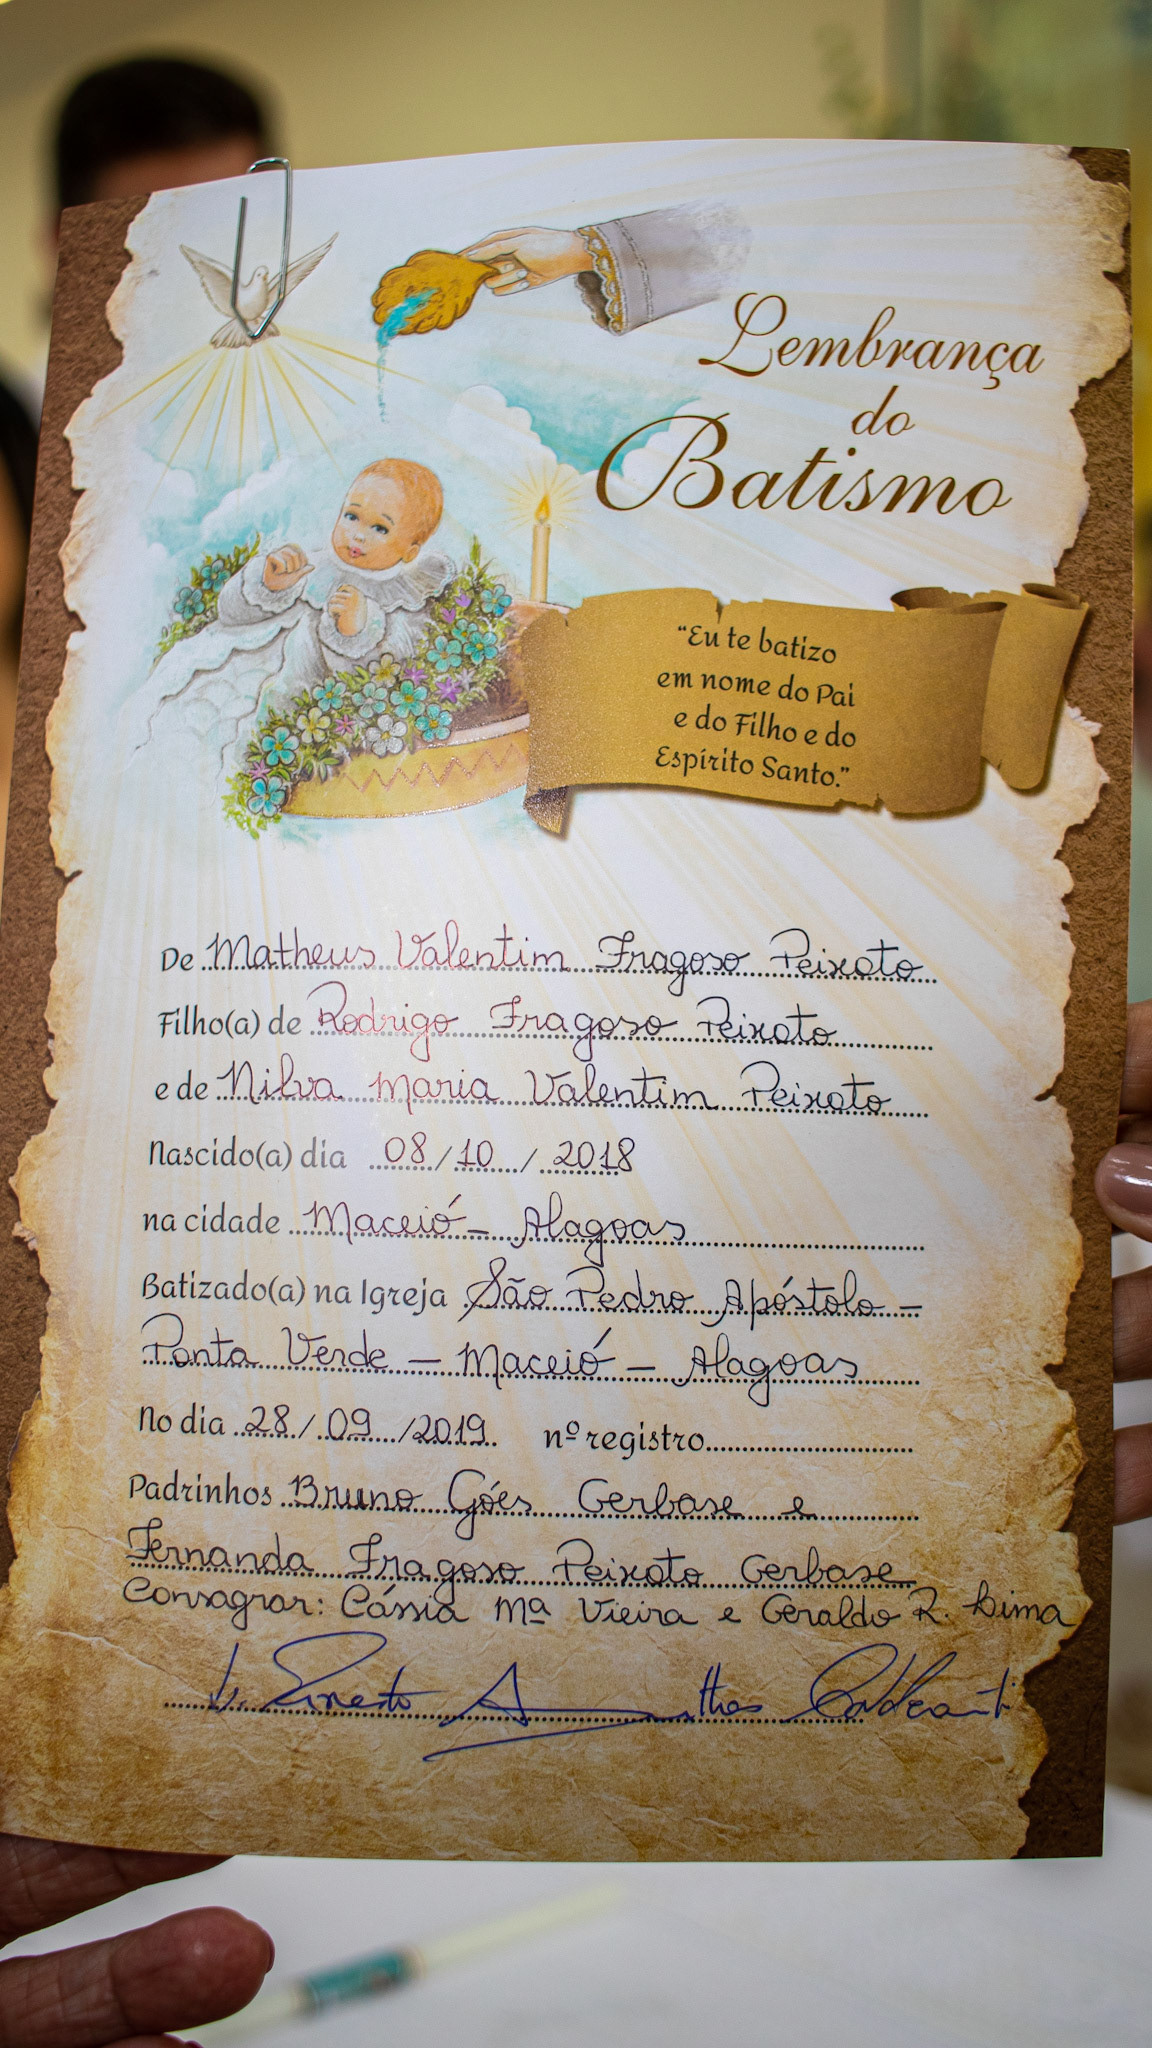 Lembrança
do
Batismo
“Eu te batizo
em nome do Pai
e do Filho e do
Espírito Santo.”
De Matheus Valentim Fragoso Peixoto
Filho(a) de Rodrigo Fragoso Peixoto
e de Nilva Maria Valentim Peixoto
Nascido(a) dia 08/10/2018
na cidade Maceió - Alagoas
Batizado(a) na Igreja São Pedro Apóstolo -
Ponta Verde - Maceió - Alagoas
No dia 28/09/2019 nº registro
Padrinhos Bruno Góes Gerbase e
Fernanda Fragoso Peixoto Gerbase
Consagrar: Cássia Mª Vieira e Geraldo R. Lima